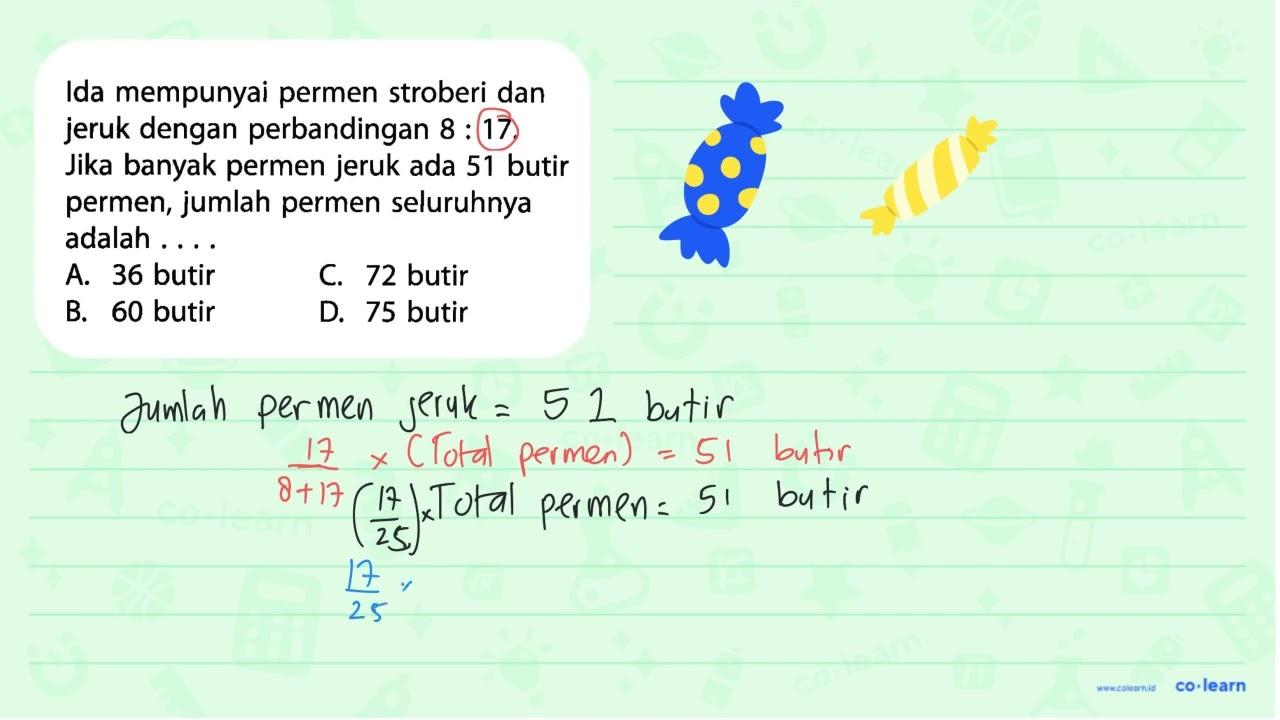 Ida mempunyai permen stroberi dan
jeruk dengan perbandingan 8 : 17.
Jika banyak permen jeruk ada 51 butir
permen, jumlah permen seluruhnya
adalah . . . .
A. 36 butir C. 72 butir
B. 60 butir D. 75 butir
Jumlah permen jeruk = 51 butir
17/8+17 × (Total permen) = 51 butir
(17/25) × Total permen = 51 butir
17/25
www.colearn.id co·learn